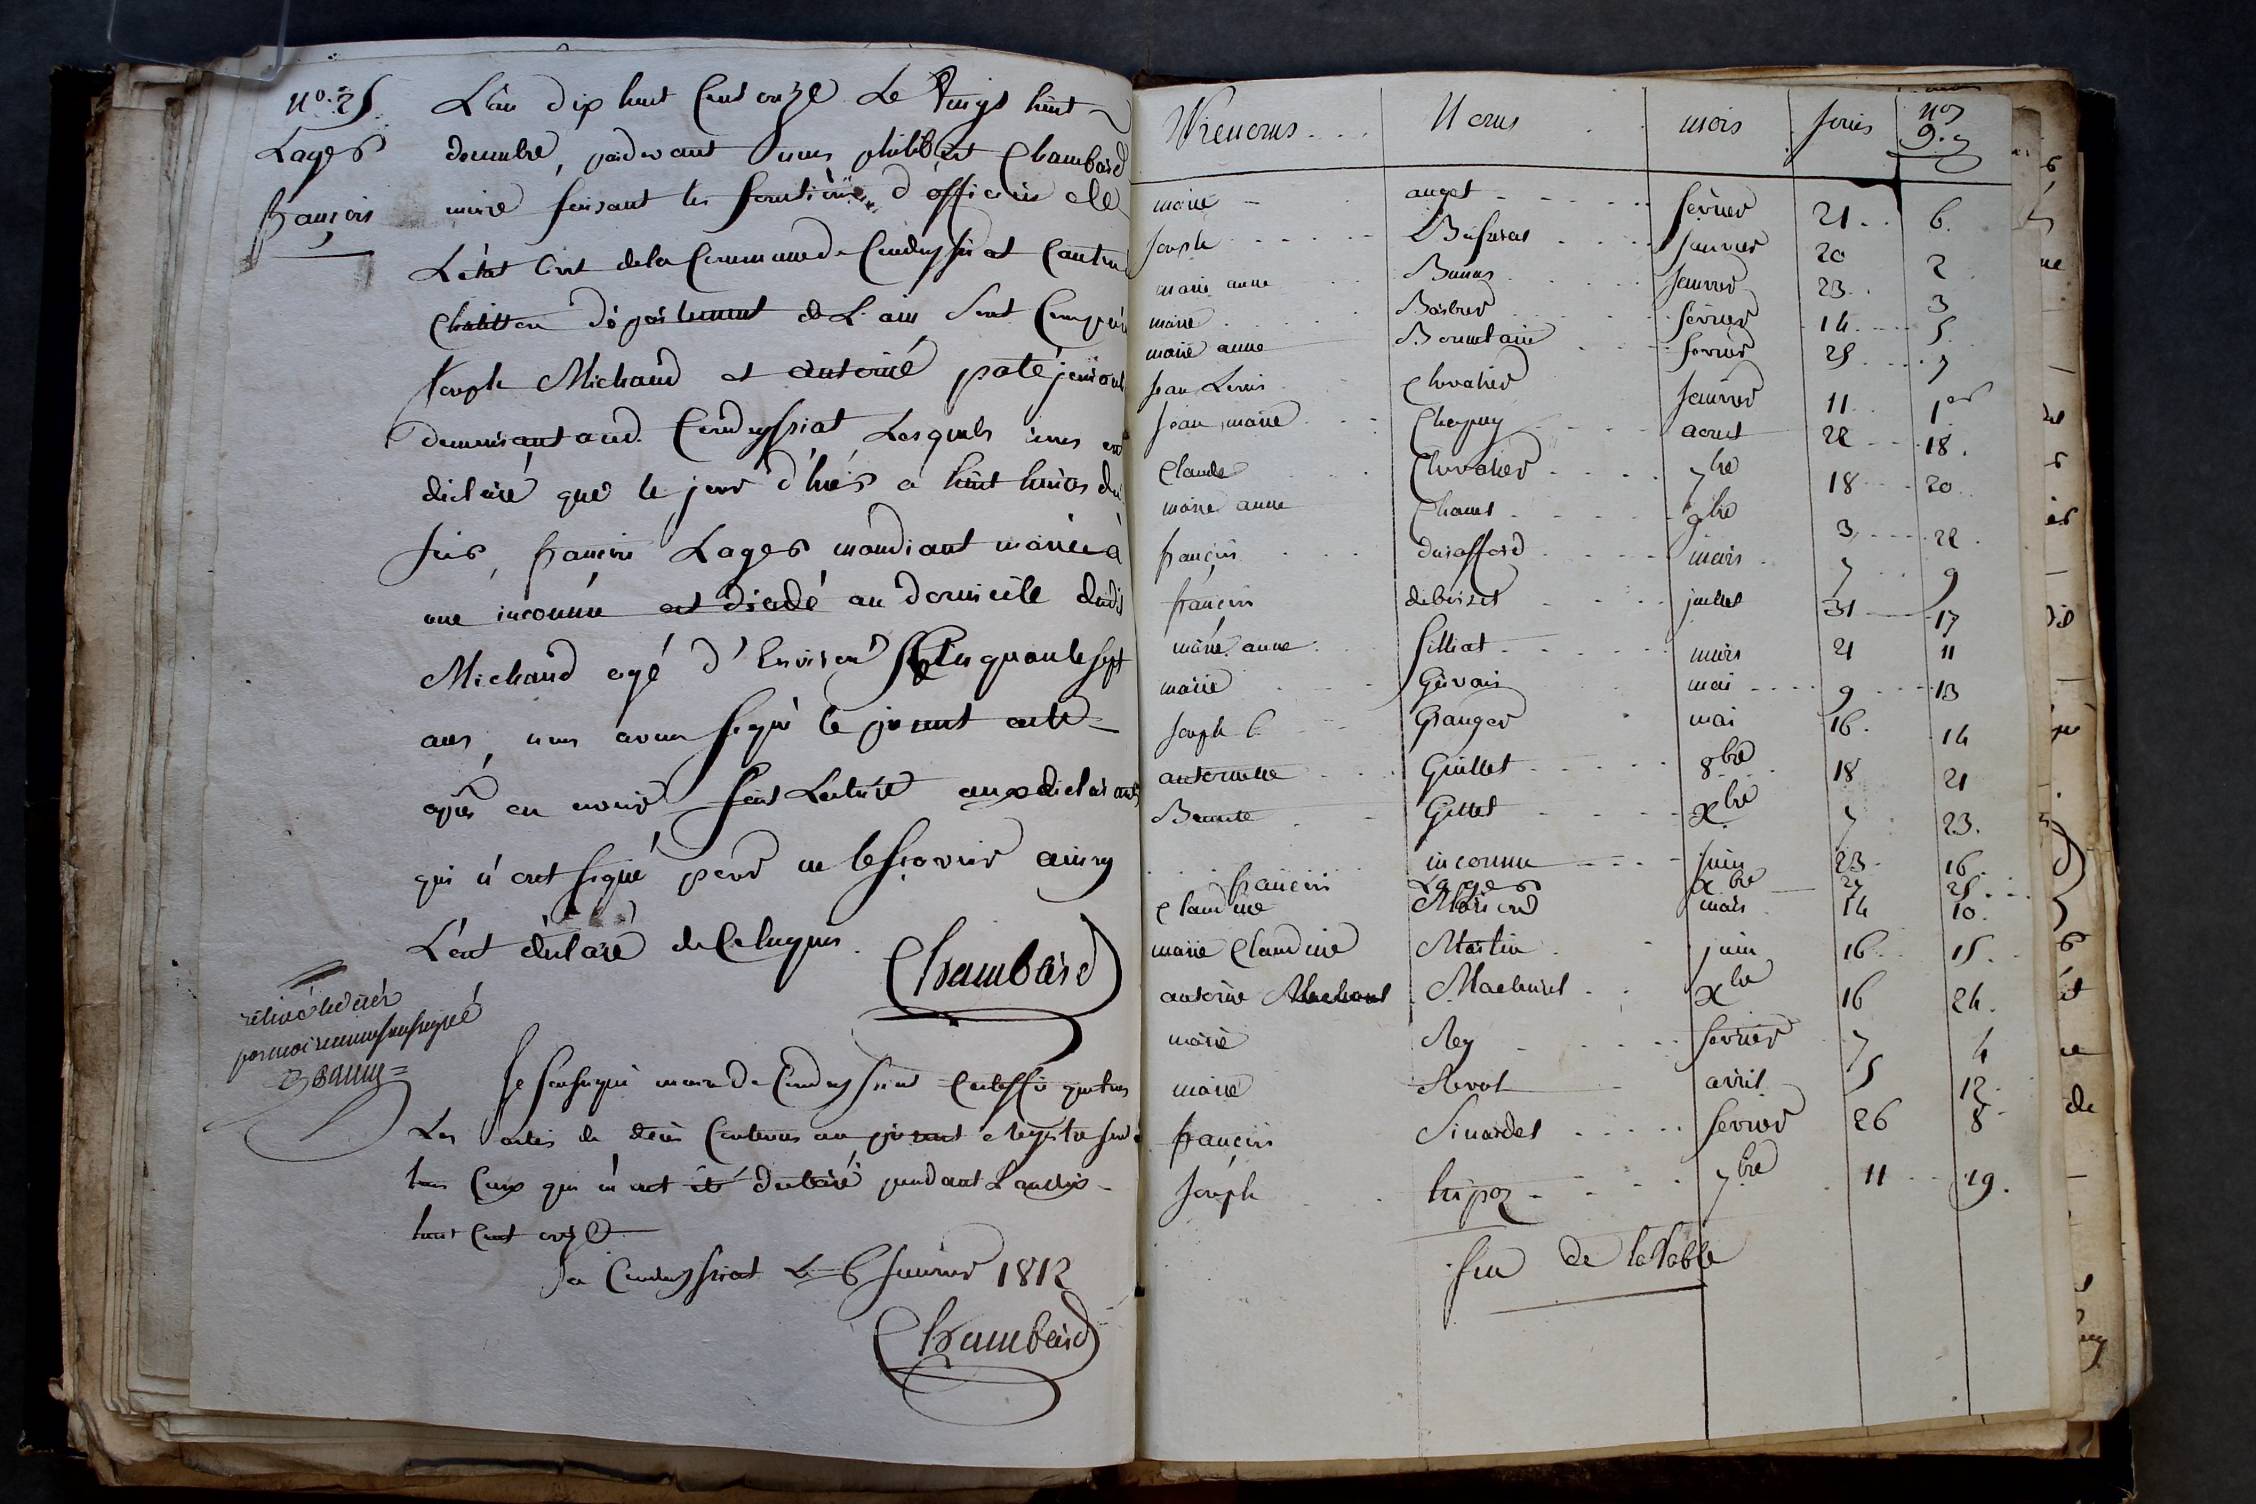 N.o 25
Lages
françois
L'an dix huit Cent onze Le Vingt huit
decembre, pardevant nous philibert Chambard
maire faisant les fonctions d'officier de
L'état Civil de la Commune de Condeyssiat Canton
Chatillon département de L'ain Sont Comparu
Joseph Michaud et antoine pate
demeurant aud. Condeyssiat, Lesquels nous ont
déclaré que le jour d'hier a huit heures du
soir, françois Lages mandiant marié à
une inconnue est décédé au Domicile dudit
Michaud agé d'Environ Cinquante sept
ans, nous avons signé le présent acte
après en avoir fait Lecture aux déclarants
qui n'ont signé pour ne le sçavoir ainsy
L'ont déclaré de Ce Enquis.
Chambard
par moi soussigné
Je soussigné maire de Condeyssiat Certiffie que tous
Les actes de décès Contenus au présent Registre sont
tous Ceux qui m'ont été déclaré pendant L'an dix
huit Cent onze
a Condeyssiat Le 6 Janvier 1812
Chambard
Prenoms Noms mois jours nos
marie auget février 21 6.
Joseph janvier 20 2
marie anne janvier 23 3
marie Barbier février 14 5
marie anne fevrier 25 7
Jean Louis Chevalier janvier 11 1er
Jean marie Chapuy aout 22 18.
Claude Chevalier 7bre 18 20
marie anne 9bre 3 22.
françois durafford mars 7 9
françois juillet 31 17
marie anne filliat mars 21 11
marie Gervais mai 9 13
Joseph Granger mai 16. 14
antoinette Guillet 8bre 18 21
Benoite Gillet Xbre 7 23.
inconnu juin 23 16
françois Lages Xbre 27 25
Claudine mars 14 10.
marie Claudine Martin juin 16 15.
antoine Xbre 16 24.
marie Rey fevrier 7 4
marie avril 5 12
françois Sinardet fevrier 26 8
Joseph 7bre 11 19.
fin de la Table